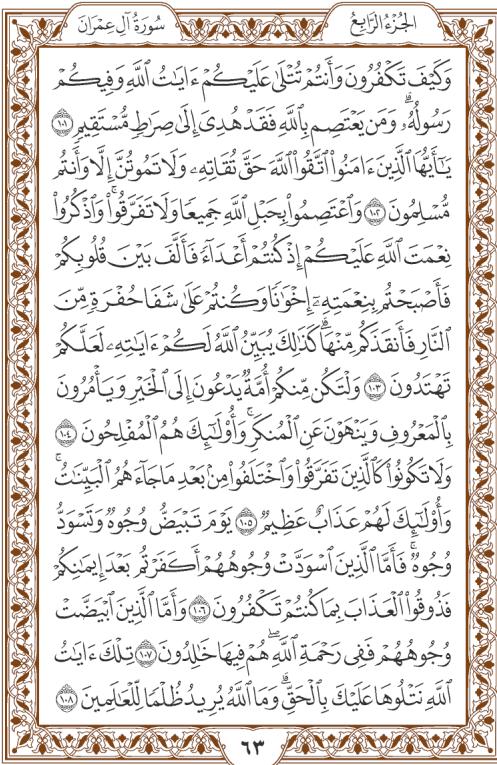 الجُزْءُ الرَّابِعُ سُورَةُ آلِ عِمْرَانَ
وَكَيْفَ تَكْفُرُونَ وَأَنتُمْ تُتْلَىٰ عَلَيْكُمْ ءَايَٰتُ ٱللَّهِ وَفِيكُمْ
رَسُولُهُۥۗ وَمَن يَعْتَصِم بِٱللَّهِ فَقَدْ هُدِىَ إِلَىٰ صِرَٰطٍ مُّسْتَقِيمٍ ١٠١
يَٰٓأَيُّهَا ٱلَّذِينَ ءَامَنُوا۟ ٱتَّقُوا۟ ٱللَّهَ حَقَّ تُقَاتِهِۦ وَلَا تَمُوتُنَّ إِلَّا وَأَنتُم
مُّسْلِمُونَ ١٠٢ وَٱعْتَصِمُوا۟ بِحَبْلِ ٱللَّهِ جَمِيعًا وَلَا تَفَرَّقُوا۟ۚ وَٱذْكُرُوا۟
نِعْمَتَ ٱللَّهِ عَلَيْكُمْ إِذْ كُنتُمْ أَعْدَآءً فَأَلَّفَ بَيْنَ قُلُوبِكُمْ
فَأَصْبَحْتُم بِنِعْمَتِهِۦٓ إِخْوَٰنًا وَكُنتُمْ عَلَىٰ شَفَا حُفْرَةٍ مِّنَ
ٱلنَّارِ فَأَنقَذَكُم مِّنْهَاۗ كَذَٰلِكَ يُبَيِّنُ ٱللَّهُ لَكُمْ ءَايَٰتِهِۦ لَعَلَّكُمْ
تَهْتَدُونَ ١٠٣ وَلْتَكُن مِّنكُمْ أُمَّةٌ يَدْعُونَ إِلَى ٱلْخَيْرِ وَيَأْمُرُونَ
بِٱلْمَعْرُوفِ وَيَنْهَوْنَ عَنِ ٱلْمُنكَرِۚ وَأُو۟لَٰٓئِكَ هُمُ ٱلْمُفْلِحُونَ ١٠٤
وَلَا تَكُونُوا۟ كَٱلَّذِينَ تَفَرَّقُوا۟ وَٱخْتَلَفُوا۟ مِنۢ بَعْدِ مَا جَآءَهُمُ ٱلْبَيِّنَٰتُۚ
وَأُو۟لَٰٓئِكَ لَهُمْ عَذَابٌ عَظِيمٌ ١٠٥ يَوْمَ تَبْيَضُّ وُجُوهٌ وَتَسْوَدُّ
وُجُوهٌۚ فَأَمَّا ٱلَّذِينَ ٱسْوَدَّتْ وُجُوهُهُمْ أَكَفَرْتُم بَعْدَ إِيمَٰنِكُمْ
فَذُوقُوا۟ ٱلْعَذَابَ بِمَا كُنتُمْ تَكْفُرُونَ ١٠٦ وَأَمَّا ٱلَّذِينَ ٱبْيَضَّتْ
وُجُوهُهُمْ فَفِى رَحْمَةِ ٱللَّهِۖ هُمْ فِيهَا خَٰلِدُونَ ١٠٧ تِلْكَ ءَايَٰتُ
ٱللَّهِ نَتْلُوهَا عَلَيْكَ بِٱلْحَقِّۗ وَمَا ٱللَّهُ يُرِيدُ ظُلْمًا لِّلْعَٰلَمِينَ ١٠٨
٦٣